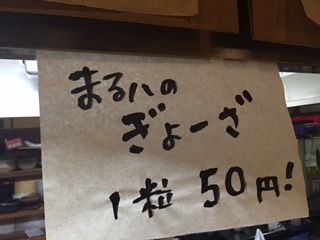 まるハの
ぎょーざ
1粒 50円!